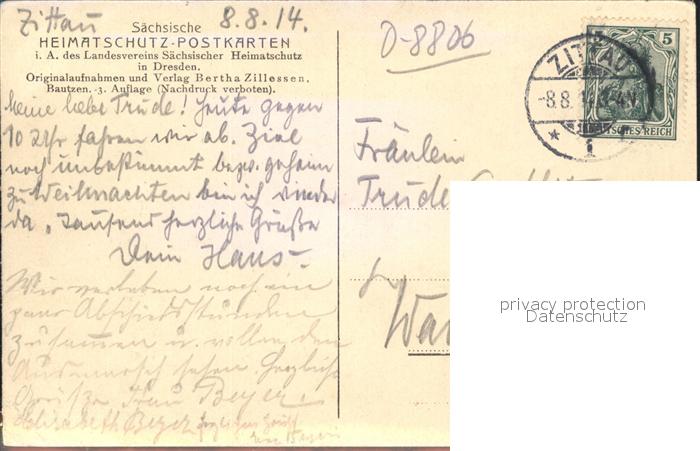 Zittau 8.8.14.
Sächsische
HEIMATSCHUTZ-POSTKARTEN
i. A. des Landesvereins Sächsischer Heimatschutz
in Dresden.
Originalaufnahmen und Verlag Bertha Zillessen,
Bautzen. -3. Auflage (Nachdruck verboten).
D-8806
5
ZITTAU
-8.8. 14. 3-4 N
* 1
DEUTSCHES REICH
Meine liebe Trude! Heute gegen
10 Uhr fahren wir ab. Ziel
noch unbestimmt bezw. geheim
zu Weihnachten bin ich wieder
da. Tausend herzliche Grüße
Dein Hans.
Wir verleben noch ein
paar Abschiedsstunden
zusammen u. wollen den
Ausmarsch sehen. Herzliche
Grüße Frau Beyer.
Elisabeth Beyer
Fräulein
Trude
Wa
privacy protection
Datenschutz